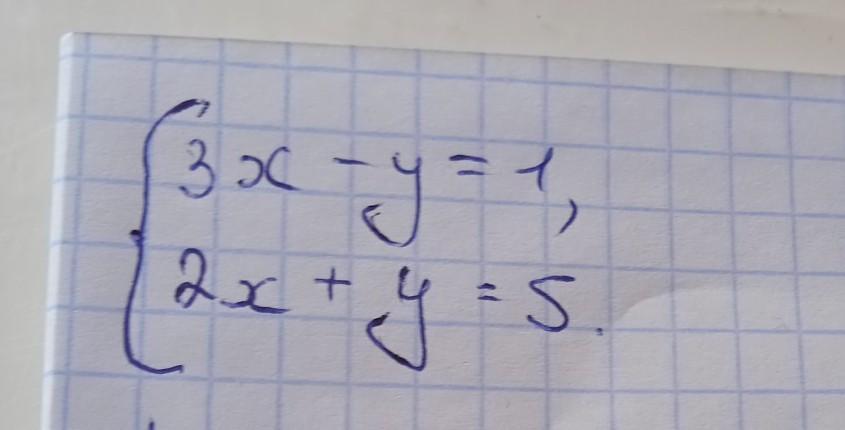 3x - y = 1,
2x + y = 5.